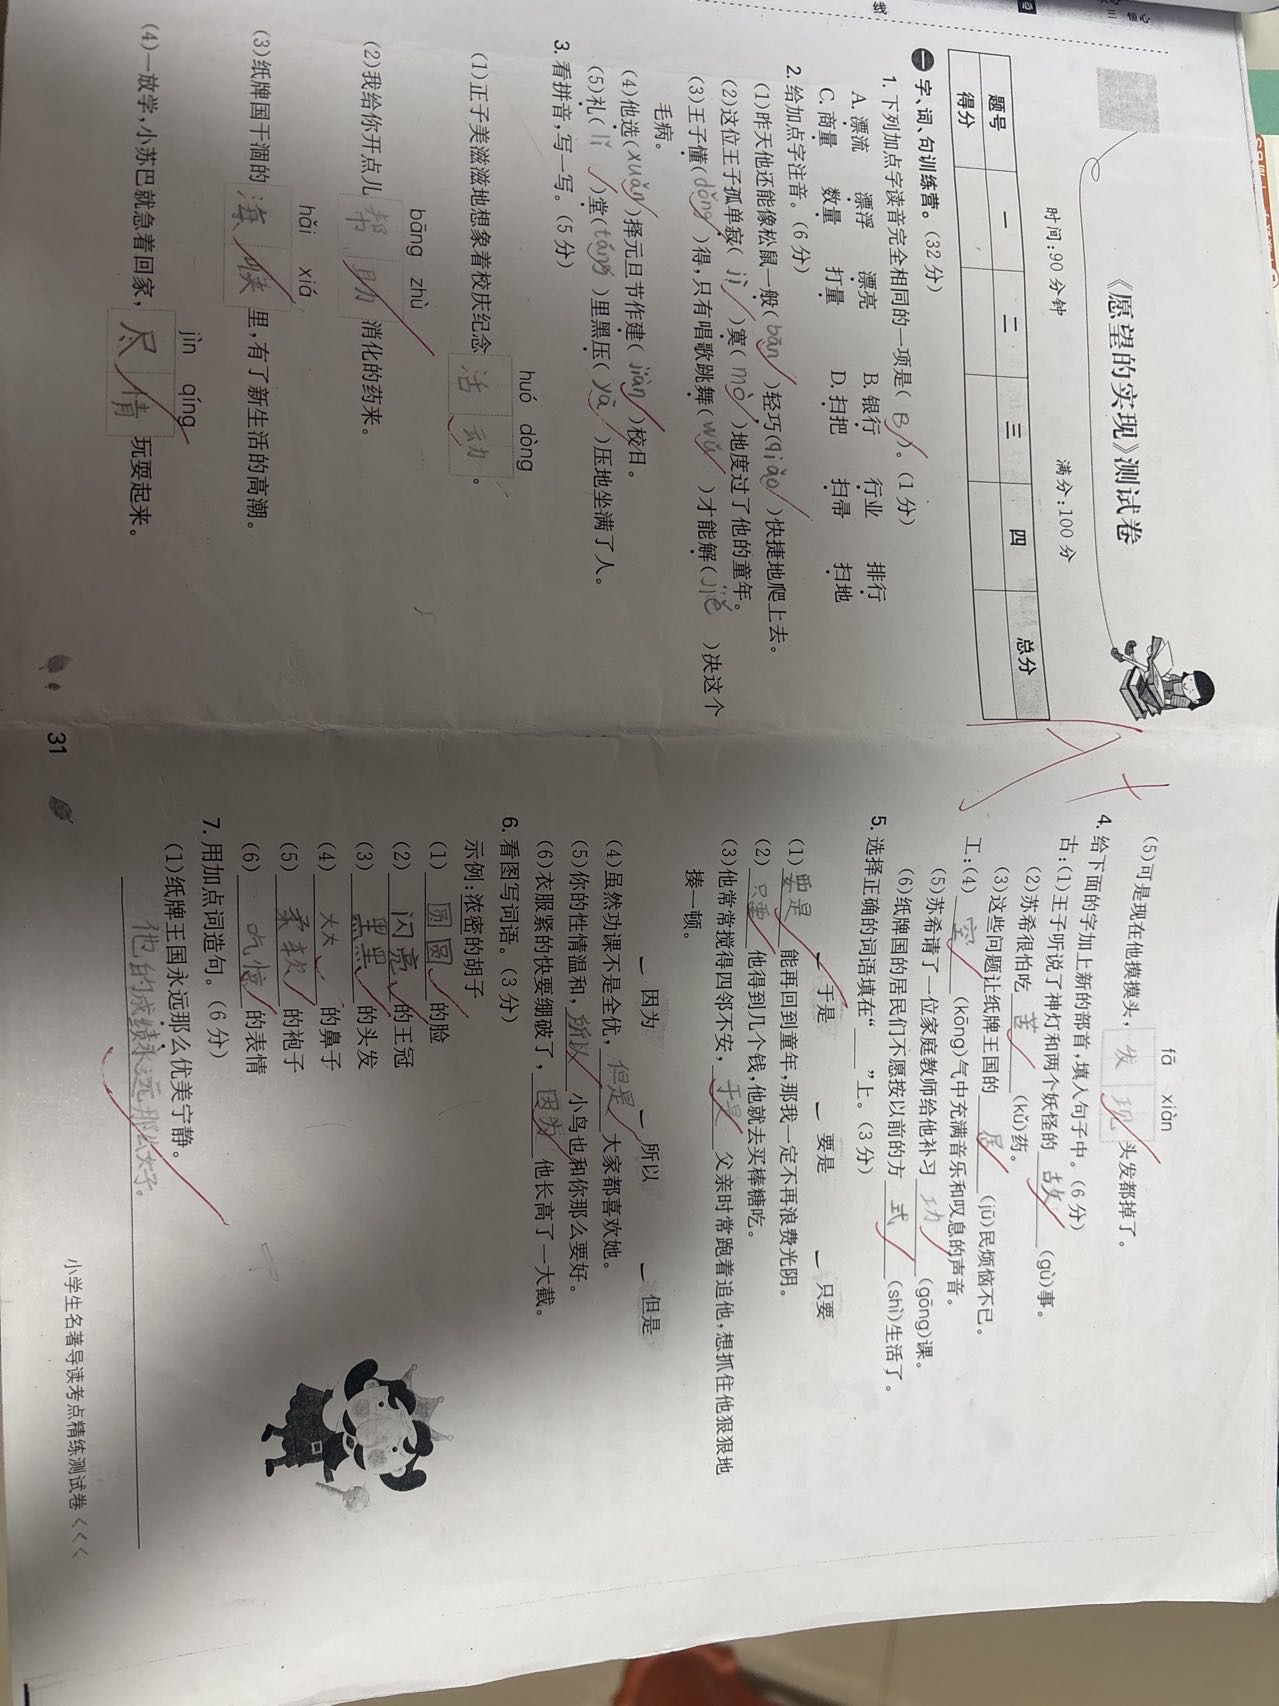 《愿望的实现》测试卷
时间:90分钟 满分:100分
题号 一 二 三 四 总分
得分
一 字、词、句训练营。(32分)
1. 下列加点字读音完全相同的一项是( B )。(1分)
A. 漂流 漂浮 漂亮 B. 银行 行业 排行
C. 商量 数量 打量 D. 扫把 扫帚 扫地
2. 给加点字注音。(6分)
(1)昨天他还能像松鼠一般( bān )轻巧( qiǎo )快捷地爬上去。
(2)这位王子孤单寂( jì )寞( mò )地度过了他的童年。
(3)王子懂( dǒng )得,只有唱歌跳舞( wǔ )才能解( jiě )决这个
毛病。
(4)他选( xuǎn )择元旦节作建( jiàn )校日。
(5)礼( lǐ )堂( táng )里黑压( yā )压地坐满了人。
3. 看拼音,写一写。(5分)
huó dòng
(1)正子美滋滋地想象着校庆纪念 活动 。
bāng zhù
(2)我给你开点儿 帮助 消化的药来。
hǎi xiá
(3)纸牌国干涸的 海峡 里,有了新生活的高潮。
jìn qíng
(4)一放学,小苏巴就急着回家, 尽情 玩耍起来。
31
fā xiàn
(5)可是现在他摸摸头, 发现 头发都掉了。
4. 给下面的字加上新的部首,填入句子中。(6分)
古:(1)王子听说了神灯和两个妖怪的 故 (gù)事。
(2)苏希很怕吃 苦 (kǔ)药。
(3)这些问题让纸牌王国的 居 (jū)民烦恼不已。
工:(4) 空 (kōng)气中充满音乐和叹息的声音。
(5)苏希请了一位家庭教师给他补习 功 (gōng)课。
(6)纸牌国的居民们不愿按以前的方 式 (shì)生活了。
5. 选择正确的词语填在“____”上。(3分)
于是 要是 只要
(1) 要是 能再回到童年,那我一定不再浪费光阴。
(2) 只要 他得到几个钱,他就去买棒糖吃。
(3)他常常搅得四邻不安, 于是 父亲时常跑着追他,想抓住他狠狠地
揍一顿。
因为 所以 但是
(4)虽然功课不是全优, 但是 大家都喜欢她。
(5)你的性情温和, 所以 小鸟也和你那么要好。
(6)衣服紧的快要绷破了, 因为 他长高了一大截。
6. 看图写词语。(3分)
示例:浓密的胡子
(1) 圆圆 的脸
(2) 闪亮 的王冠
(3) 黑黑 的头发
(4) 大大 的鼻子
(5) 柔软 的袍子
(6) 吃惊 的表情
7. 用加点词造句。(6分)
(1)纸牌王国永远那么优美宁静。
他的成绩永远那么好。
小学生名著导读考点精练测试卷<<<